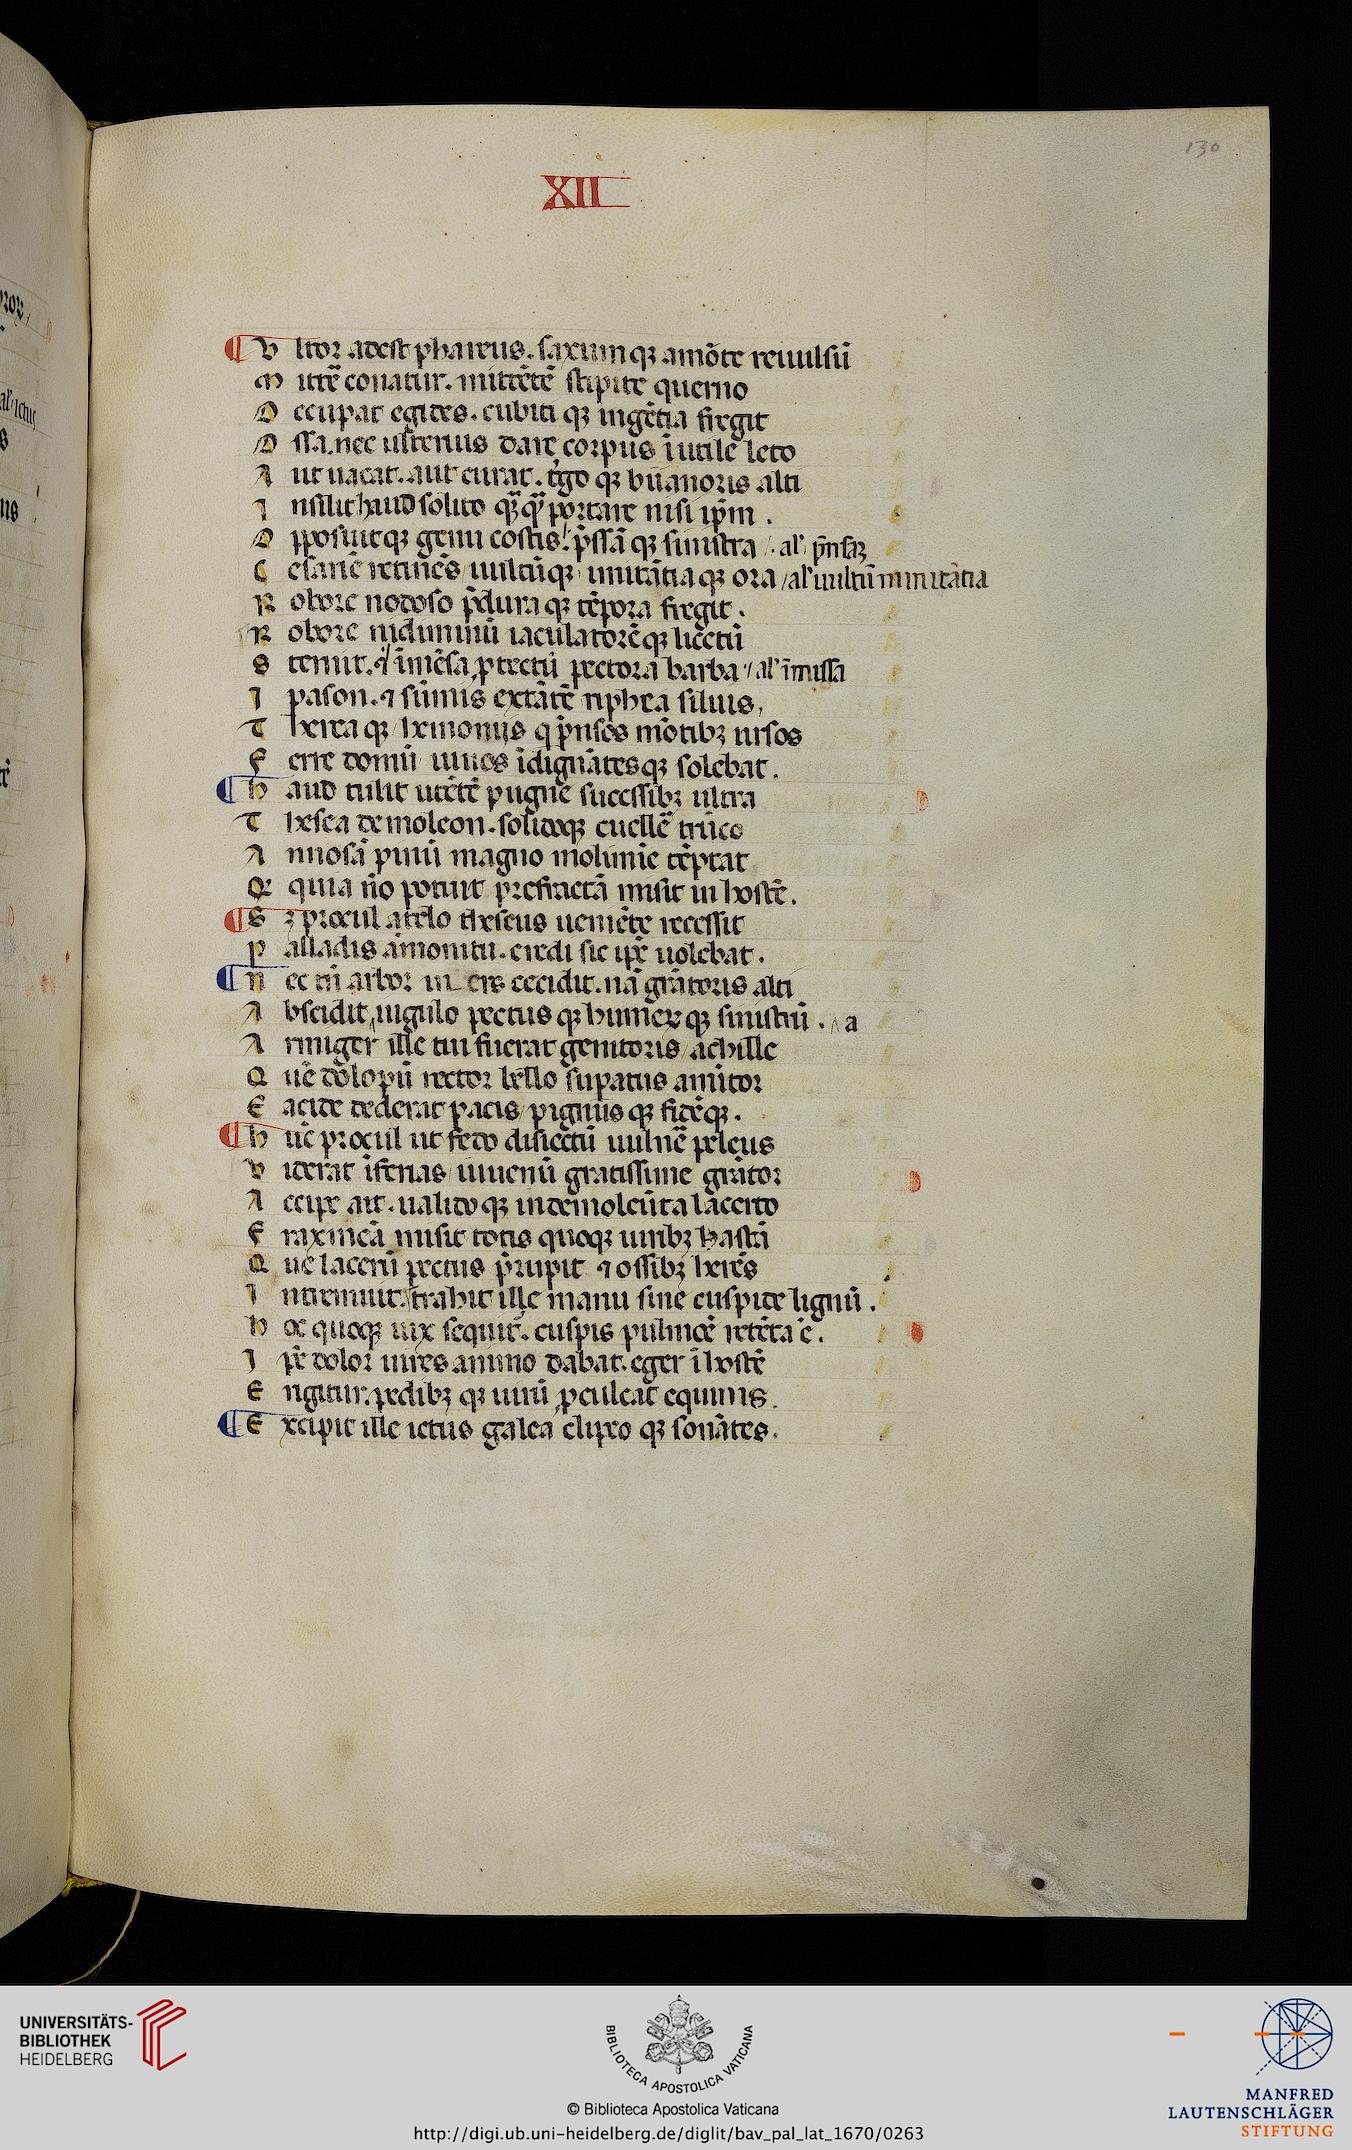 130
XII
V ltor adest phareus. saxumqꝫ amōte reuulsū
M ittē conatur. mittētē stipite querno
O ccupat egides. cubitiqꝫ ingētia fregit
O ssa. nec ulterius dare corpus īutile leto
A ut uacat. aut curat. t̓goqꝫ bianoris alti
I nsilit haud solito q̄ꝫq̄ portare nisi ip̄m.
O pposuitqꝫ genu costis. p̄ssāqꝫ sinistra /. al' p̄nsāqꝫ
C esariē retinēs uultūqꝫ minitātiaqꝫ ora / al' uultū minitātia
R obore nodoso p̄duraqꝫ tēpora fregit.
R obore nidiminū iaculatorēqꝫ licetū
S ternit. ⁊ īmēsa ꝓtectū pectora barba / al' īmissa
I pason. ⁊ sūmis extātē riphea siluis,
T hereaqꝫ hemonijs q p̄nsos mōtibꝫ ursos
F erre domū uiuos īdignātesqꝫ solebat.
H aud tulit utētē pugne successibꝫ ultra
T hesea demoleon. solidoqꝫ euellē trūco
A nnosā pinū magno molimie tēptat
Q quia nō potuit prefractā misit in hostē.
S ꝫ procul a telo theseus ueniēte recessit
P alladis āmonitu. credi sic ip̄e uolebat.
N ec tn̄ arbor in ers cecidit. nā grātoris alti
A bscidit iugulo pectusqꝫ humerūqꝫ sinistrū . a
A rmiger ille tui fuerat genitoris achille
Q uē dolopū rector bello sup̄atus amītor
E acide dederat pacis pignusqꝫ fidēqꝫ.
H ūc procul ut fedo disiectū uulnē peleus
V iderat īferias iuuenū gratissime grātor
A ccipe ait. ualidoqꝫ in demoleūta lacerto
F raxineā misit totis quoqꝫ uiribꝫ hastā
Q ue laterū pectus p̄rupit ⁊ ossibꝫ herēs
I ntremuit. trahit ille manu sine cuspide lignū.
H oc quoqꝫ uix sequit̄. cuspis pulmōe retēta ē.
I pē dolor uires animo dabat. eger ī hostē
E rigitur. pedibꝫqꝫ uirū ꝓculcat equinis.
E xcipit ille ictus galea clipeoqꝫ sonātes.
UNIVERSITÄTS-
BIBLIOTHEK
HEIDELBERG
BIBLIOTECA APOSTOLICA VATICANA
© Biblioteca Apostolica Vaticana
http://digi.ub.uni-heidelberg.de/diglit/bav_pal_lat_1670/0263
MANFRED
LAUTENSCHLÄGER
STIFTUNG